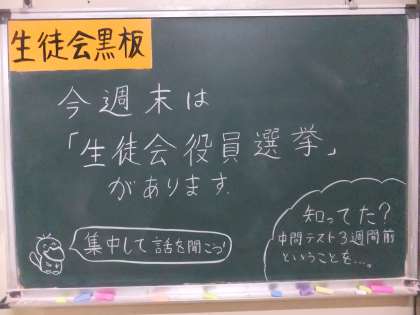 生徒会黒板
今週末は
「生徒会役員選挙」
があります.
集中して話を聞こう!
知ってた?
中間テスト3週間前
ということを…。